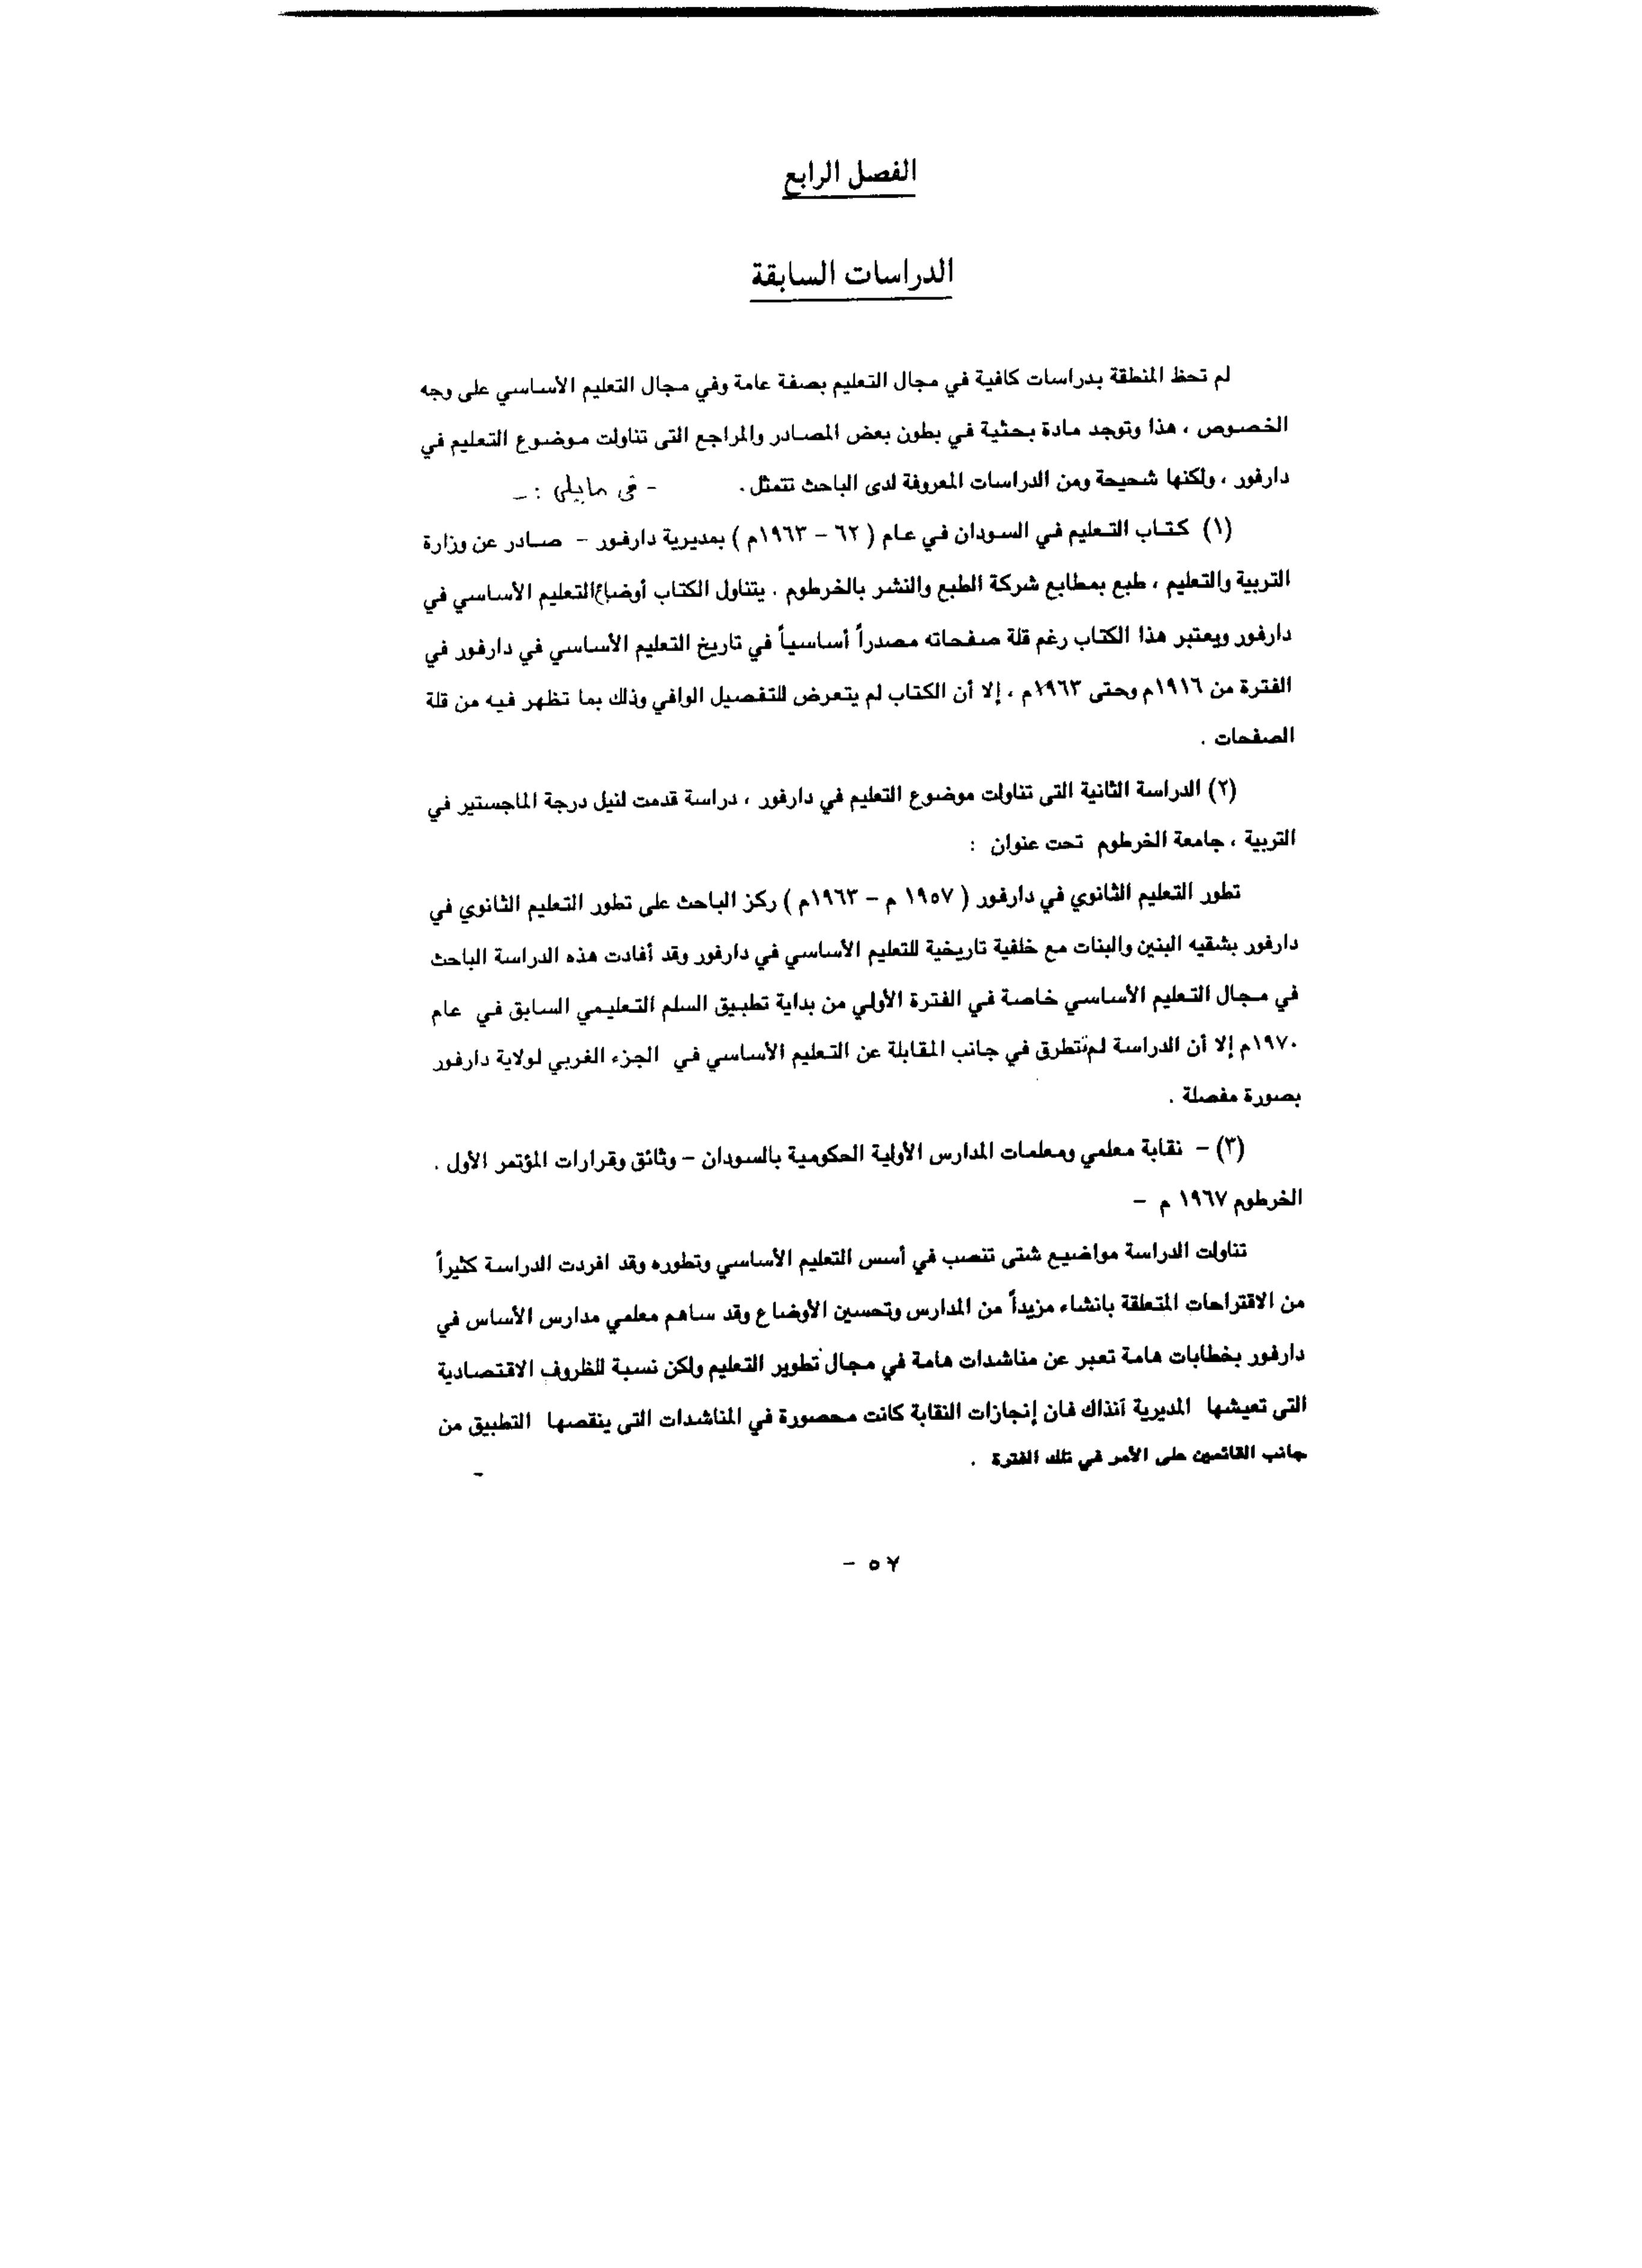 الفصل الرابع
الدراسات السابقة
لم تحظ المنطقة بدراسات كافية في مجال التعليم بصفة عامة وفي مجال التعليم الأساسي على وجه
الخصوص ، هذا وتوجد مادة بحثية في بطون بعض المصادر والمراجع التى تناولت موضوع التعليم في
دارفور ، ولكنها شحيحة ومن الدراسات المعروفة لدى الباحث تتمثل . - في مايلي : -
(١) كتاب التعليم في السودان في عام ( ٦٢ - ١٩٦٣م ) بمديرية دارفور - صادر عن وزارة
التربية والتعليم ، طبع بمطابع شركة الطبع والنشر بالخرطوم . يتناول الكتاب أوضاع التعليم الأساسي في
دارفور ويعتبر هذا الكتاب رغم قلة صفحاته مصدراً أساسياً في تاريخ التعليم الأساسي في دارفور في
الفترة من ١٩١٦م وحتى ١٩٦٣م ، إلا أن الكتاب لم يتعرض للتفصيل الوافي وذلك بما تظهر فيه من قلة
الصفحات .
(٢) الدراسة الثانية التى تناولت موضوع التعليم في دارفور ، دراسة قدمت لنيل درجة الماجستير في
التربية ، جامعة الخرطوم تحت عنوان :
تطور التعليم الثانوي في دارفور ( ١٩٥٧ م - ١٩٦٣م ) ركز الباحث على تطور التعليم الثانوي في
دارفور بشقيه البنين والبنات مع خلفية تاريخية للتعليم الأساسي في دارفور وقد أفادت هذه الدراسة الباحث
في مجال التعليم الأساسي خاصة في الفترة الأولي من بداية تطبيق السلم التعليمي السابق في عام
١٩٧٠م إلا أن الدراسة لم تتطرق في جانب المقابلة عن التعليم الأساسي في الجزء الغربي لولاية دارفور
بصورة مفصلة .
(٣) - نقابة معلمي ومعلمات المدارس الأولية الحكومية بالسودان - وثائق وقرارات المؤتمر الأول .
الخرطوم ١٩٦٧ م -
تناولت الدراسة مواضيع شتى تنصب في أسس التعليم الأساسي وتطوره وقد افردت الدراسة كثيراً
من الاقتراحات المتعلقة بانشاء مزيداً من المدارس وتحسين الأوضاع وقد ساهم معلمي مدارس الأساس في
دارفور بخطابات هامة تعبر عن مناشدات هامة في مجال تطوير التعليم ولكن نسبة للظروف الاقتصادية
التى تعيشها المديرية آنذاك فان إنجازات النقابة كانت محصورة في المناشدات التى ينقصها التطبيق من
جانب القائمين على الأمر في تلك الفترة .
٥٧ -